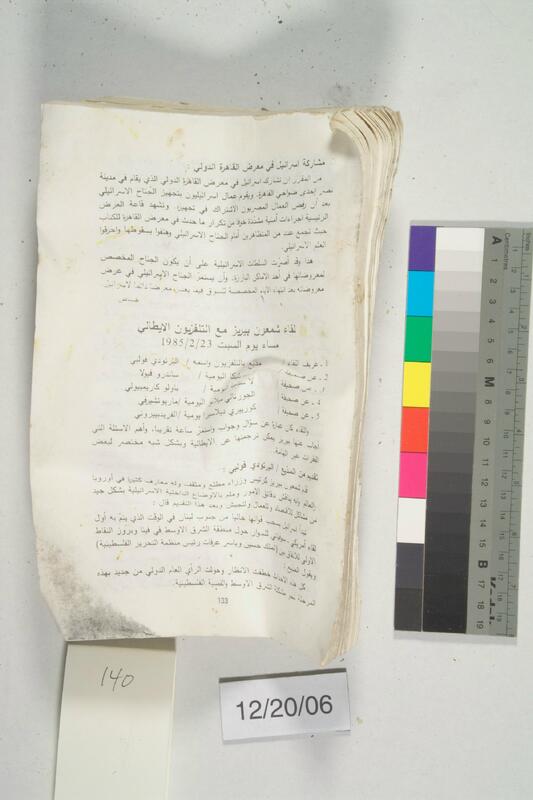 مشاركة اسرائيل في معرض القاهرة الدولي :
من المقرر ان تشارك اسرائيل في معرض القاهرة الدولي الذي يقام في مدينة
نصر إحدى ضواحي القاهرة. ويقوم عمال اسرائيليون بتجهيز الجناح الاسرائيلي
بعد أن رفض العمال المصريون الاشتراك في تجهيزه وتشهد قاعة العرض
الرئيسية اجراءات أمنية مشددة خوفا من تكرار ما حدث في معرض القاهرة للكتاب
حيث تجمع عدد من المتظاهرين أمام الجناح الاسرائيلي وهتفوا بسقوطها واحرقوا
العلم الاسرائيلي.
هذا وقد أصرت السلطات الاسرائيلية على أن يكون الجناح المخصص
لمعروضاتها في أحد الاماكن البارزة، وأن يستمر الجناح الاسرائيلي في عرض
معروضاته بعد انتهاء الايام المخصصة
لقاء شمعون بيريز مع التلفزيون الايطالي
مساء يوم السبت 1985/2/23
1 - عريف اللقاء / مذيع بالتلفزيون واسمه / البرتودي فولبي
2 - عن صحيفة اليومية / ساندرو فيولا
3 - عن صحيفة اليومية / باولو كاريمبيولي
4 - عن صحيفة اليومية / ماريوتشيرفي
5 - عن صحيفة كورييري ديلاسيرا اليومية /
واللقاء كان عبارة عن سؤال وجواب واستمر ساعة تقريبا، وأهم الاسئلة التي
أجاب عنها بيريز يمكن ترجمتها عن الايطالية وبشكل شبه مختصر لبعض
الفقرات غير الهامة.
تقديم من المذيع / البرتودي فولبي :
قدم شمعون بيريز كرئيس وزراء مطلع ومثقف وله معارف كثيرة في أوروبا
والعالم وانه يناقش دقائق الأمور وملم بالاوضاع الداخلية الاسرائيلية بشكل جيد
من مشاكل الاقتصاد والعمال والجيش وبعد هذا التقديم قال :
تبدأ اسرائيل بسحب قواتها حاليا من جنوب لبنان في الوقت الذي يتم به أول
لقاء أمريكي سوفيتي للتداول حول منطقة الشرق الاوسط في فينا وبروز النقاط
الاولى للاتفاق بين (الملك حسين وياسر عرفات رئيس منظمة التحرير الفلسطينية)
ويقول المذيع :
كل هذه الاحداث خطفت الانظار وحولت الرأي العام الدولي من جديد بهذه
المرحلة نحو مشكلة الشرق الاوسط والقضية الفلسطينية.
133
140
12/20/06
Inches
Centimetres
A
M